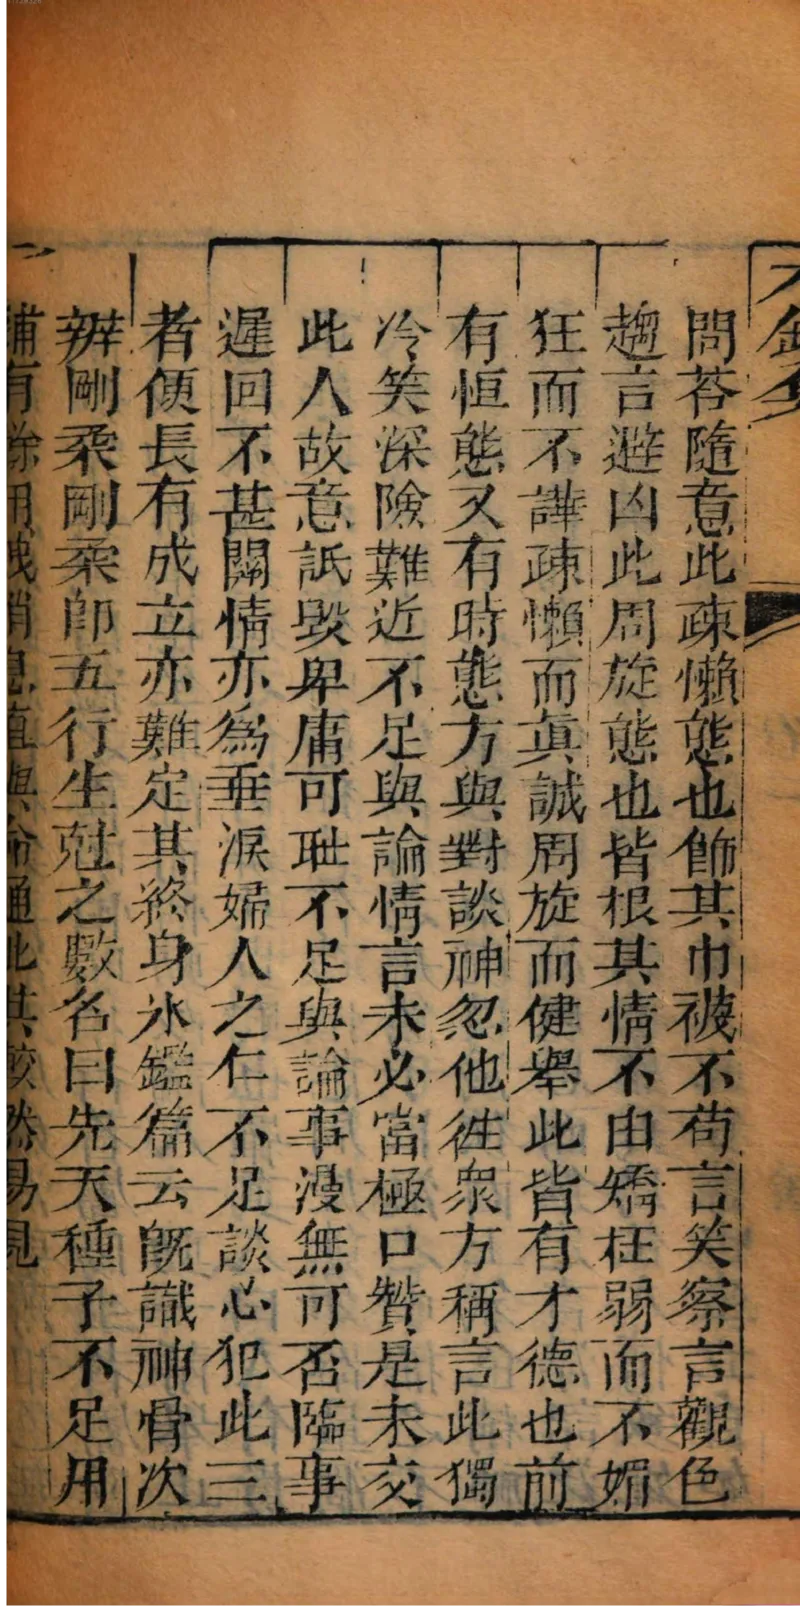 問荅隨意此疎懶態也飾其巾襪不苟言笑察言觀色
趨言避凶此周旋態也皆根其情不由矯枉弱而不媚
狂而不譁疎懶而真誠周旋而健舉此皆有才德也前
有恒態又有時態方與對談神忽他徃衆方稱言此獨
冷笑深險難近不足與論情言未必當極口贊是未交
此人故意詆毀卑庸可耻不足與論事漫無可否臨事
遲回不甚關情亦為垂淚婦人之仁不足談心犯此三
者便長有成立亦難定其終身氷鑑篇云既識神骨次
辨剛柔剛柔即五行生尅之數名曰先天種子不足用
補有餘用洩消息直與命通此其皎然易見